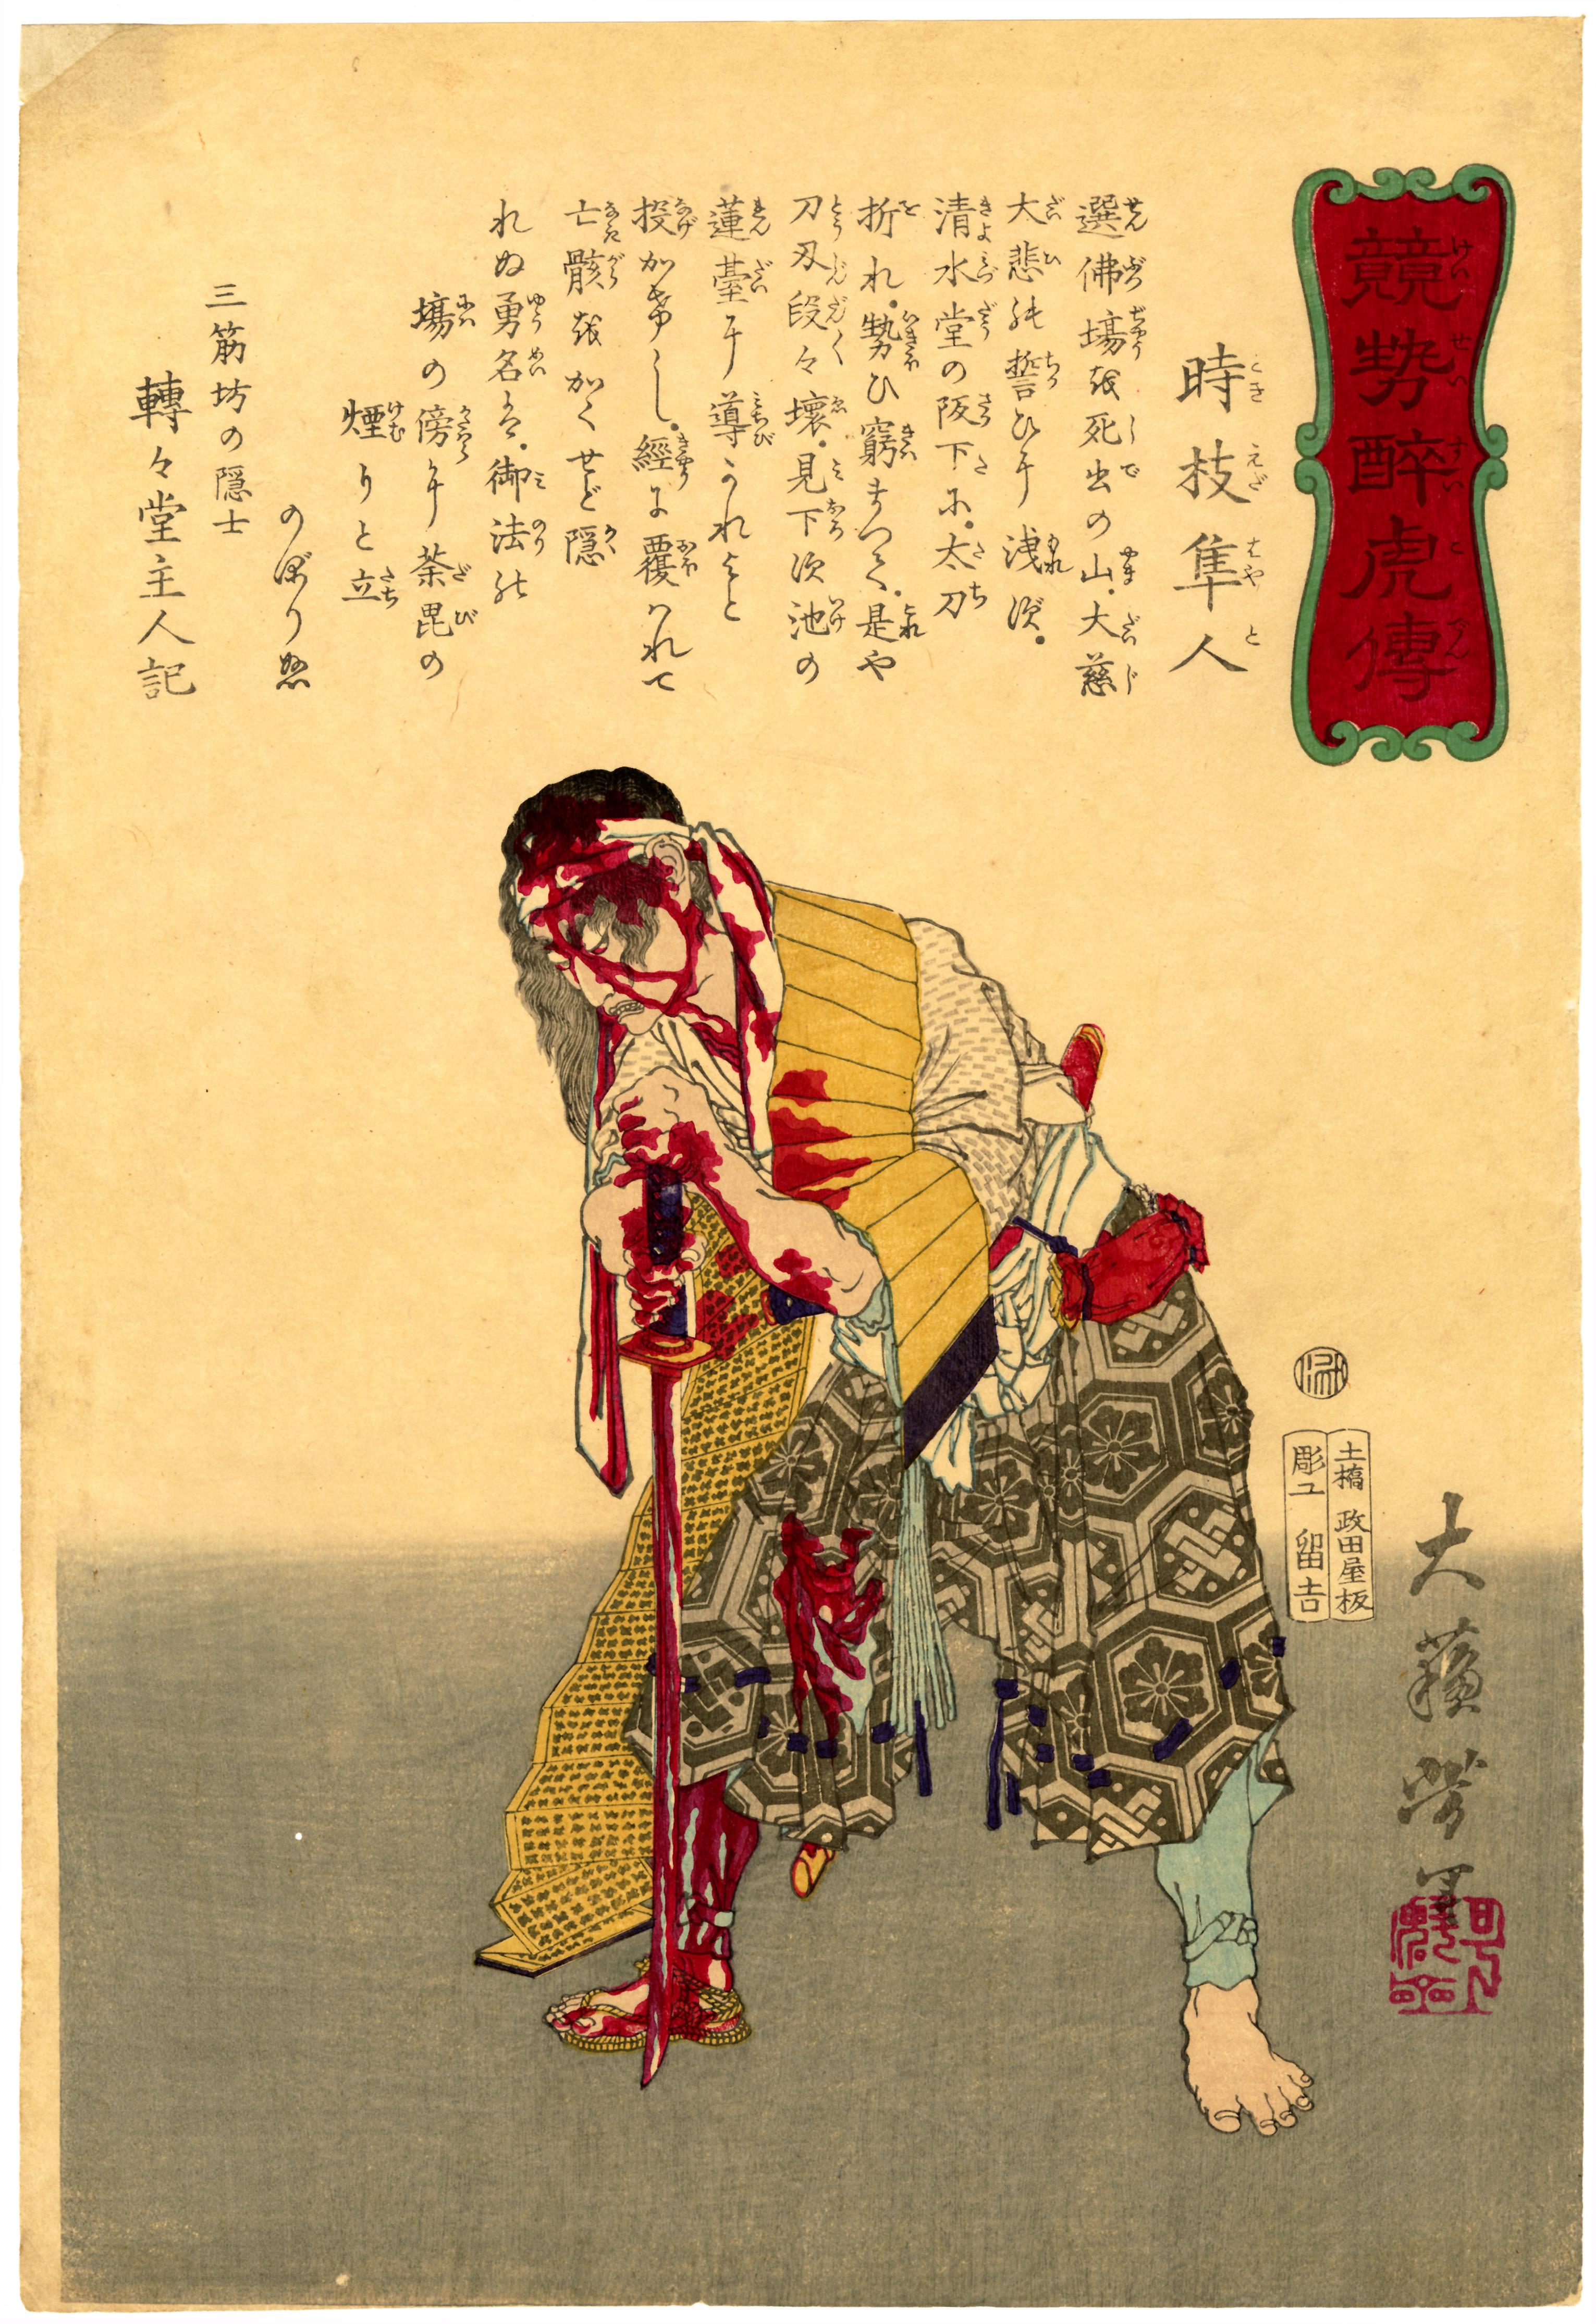 競勢酔虎傳
時枝隼人
選佛場越死出の山．大慈
大悲能誓ひ于洩須．
清水堂の阪下尓．太刀
折れ．勢ひ窮まつて．是や
刀刃段々壊．見下須池の
蓮臺于導かれよと
投かけし．經に覆はれて
亡骸越かくせど隠
れぬ勇名は．御法能
場の傍于荼毘の
煙りと立
のぼり怒
三筋坊の隠士
轉々堂主人記
土橋 政田屋板
彫工 留吉
大蘇芳年